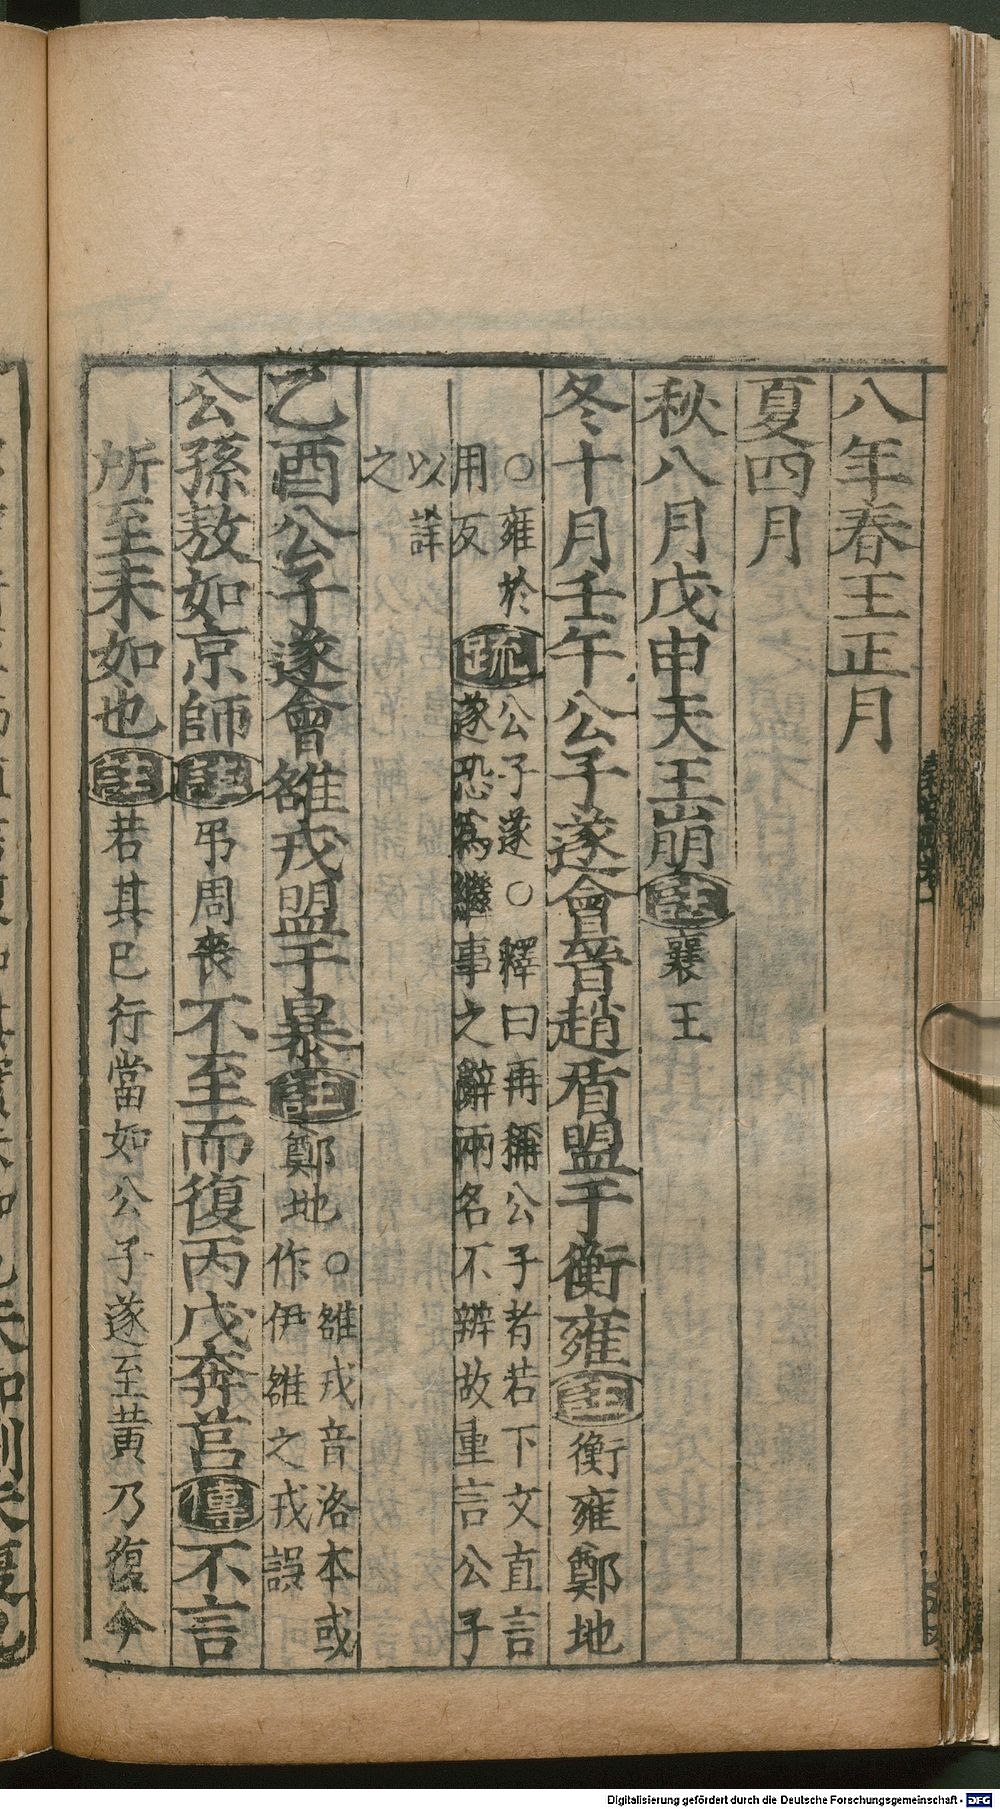 八年春王正月
夏四月
秋八月戊申天王崩註襄王
冬十月壬午公子遂會晉趙盾盟于衡雍註衡雍鄭地
○雍於
用反
疏
公子遂○釋曰再稱公子者若下文直言
遂恐為繼事之辭兩名不辨故重言公子
以詳
之
乙酉公子遂會雒戎盟于暴註鄭地
○雒戎音洛本或
作伊雒之戎誤
公孫敖如京師註弔周喪不至而復丙戌奔莒傳不言
所至未如也註若其已行當如公子遂至黃乃復今
Digitalisierung gefördert durch die Deutsche Forschungsgemeinschaft - DFG